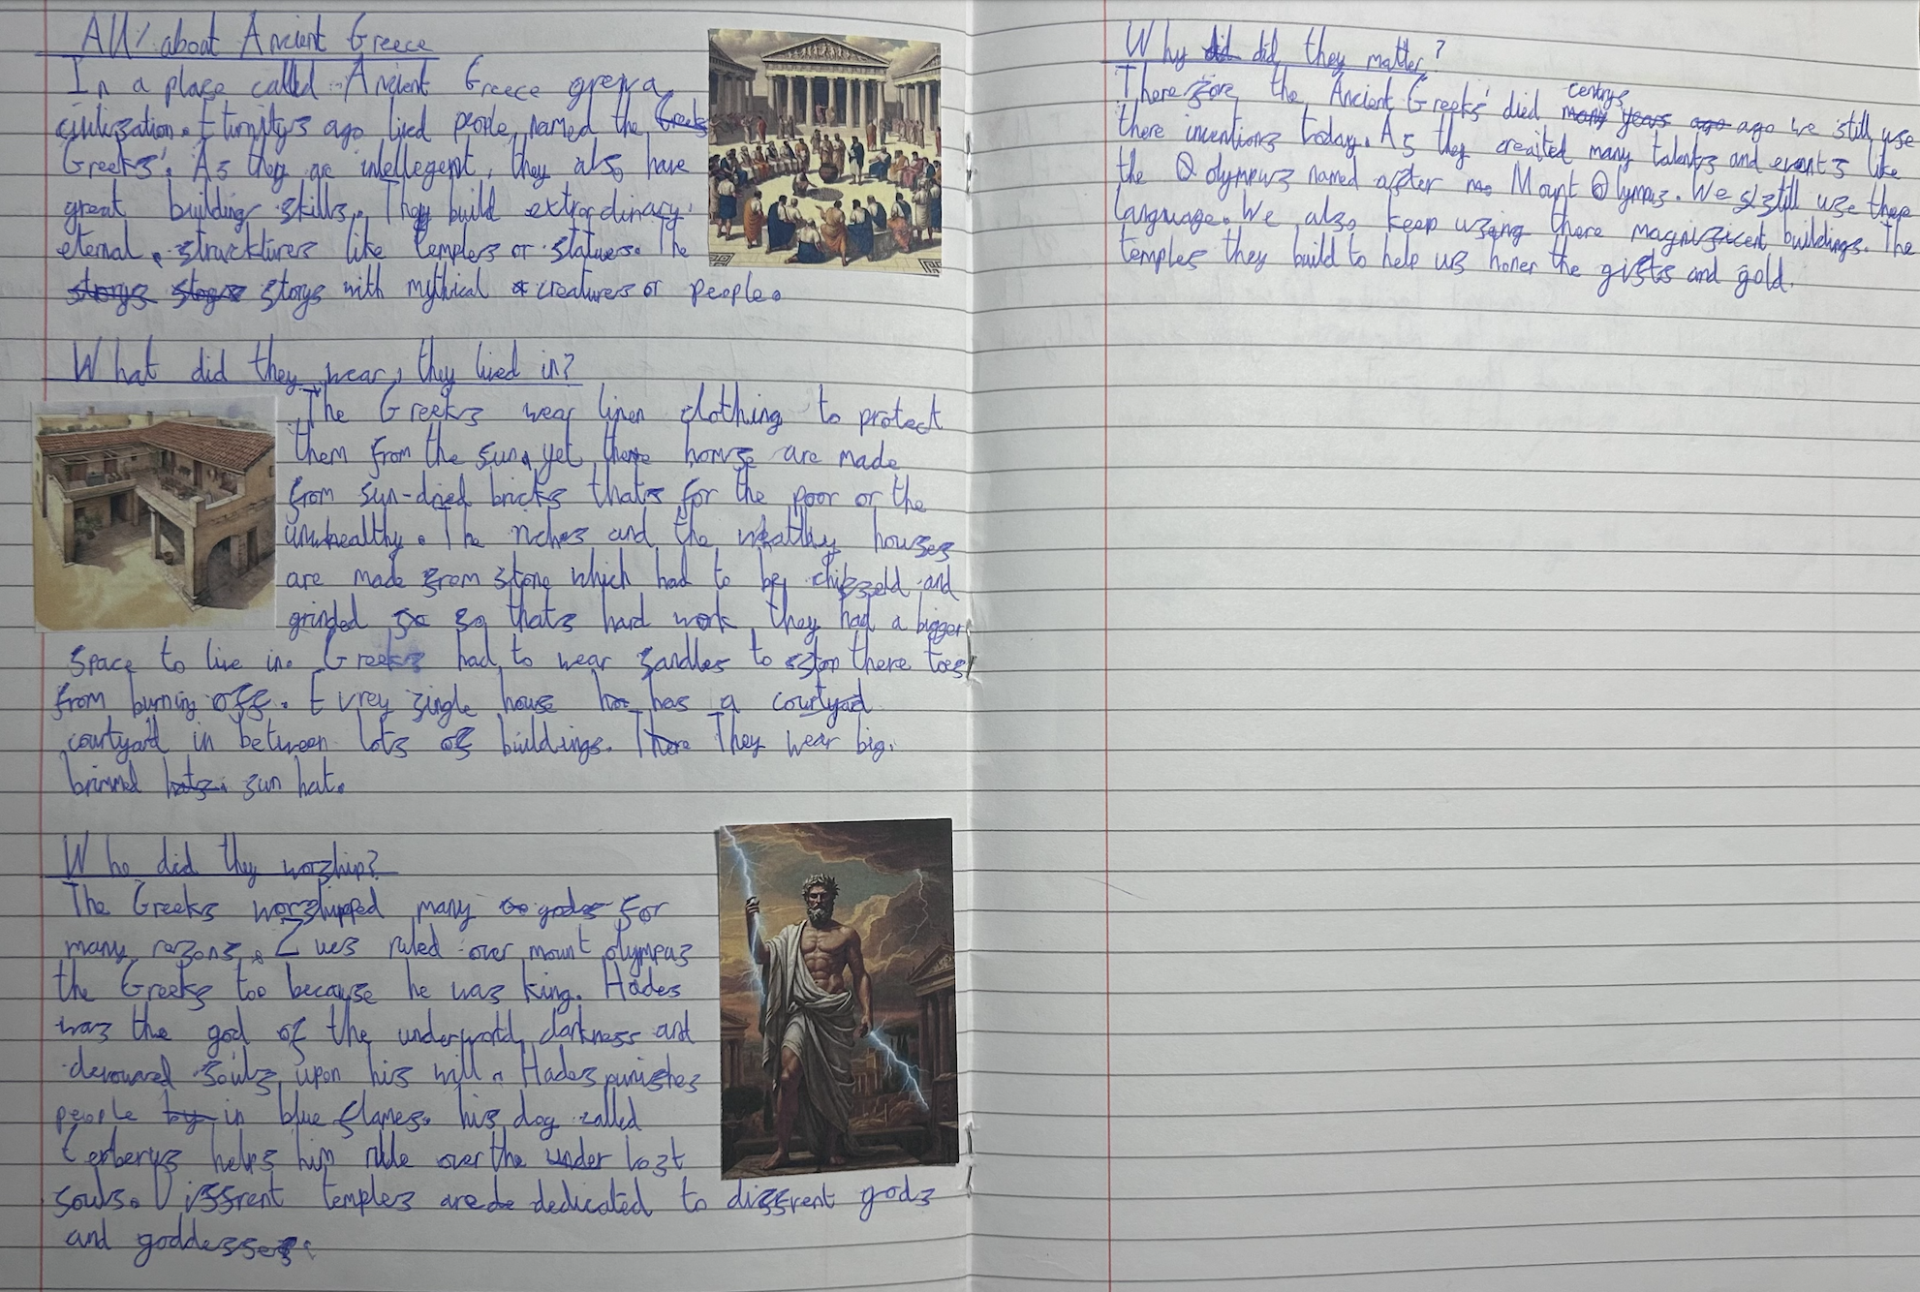 All about Ancient Greece
In a place called Ancient Greece grew a
civilization. Eturnitys ago lived people, named the Greeks
Greeks'. As they are intellegent, they also have
great building skills. They build extrordinary
eternal, strucktures like temples or statues. The
storys stogs storys with mythical creatures or people.
What did they wear, they lived in?
The Greeks wear linen clothing to protect
them from the sun, yet there homse are made
from sun-dried bricks thats for the poor or the
unhealthy. The riches and the wealthy houses
are made from stone which had to be chipseld and
grinded so so thats hard work, they had a bigger
space to live in. Greeks had to wear sandles to stop there toes
from burning off. Evrey single house ho has a courtyad
courtyard in between lots of buildings. There They wear big
brimmed hats. sun hat.
Who did they worship?
The Greeks worshipped many go gods for
many resons. Zues ruled over mount olympas
the Greeks too because he was king. Hades
was the god of the underworld, darkness and
devoured souls upon his will. Hades punishes
people by in blue flames. his dog called
Cerberus helps him rule over the under lost
souls. Diffrent temples are de dedicated to diffrent gods
and goddesses.
Why did did they matter?
Therefore the Ancient Greeks' did centurys many years ago ago we still use
there inventions today. As they creaited many talents and events like
the O olympus named after Mount Olympas. We still use there
language. We also keep using there magnificent buildings. The
temples they build to help us honer the gifts and gold.